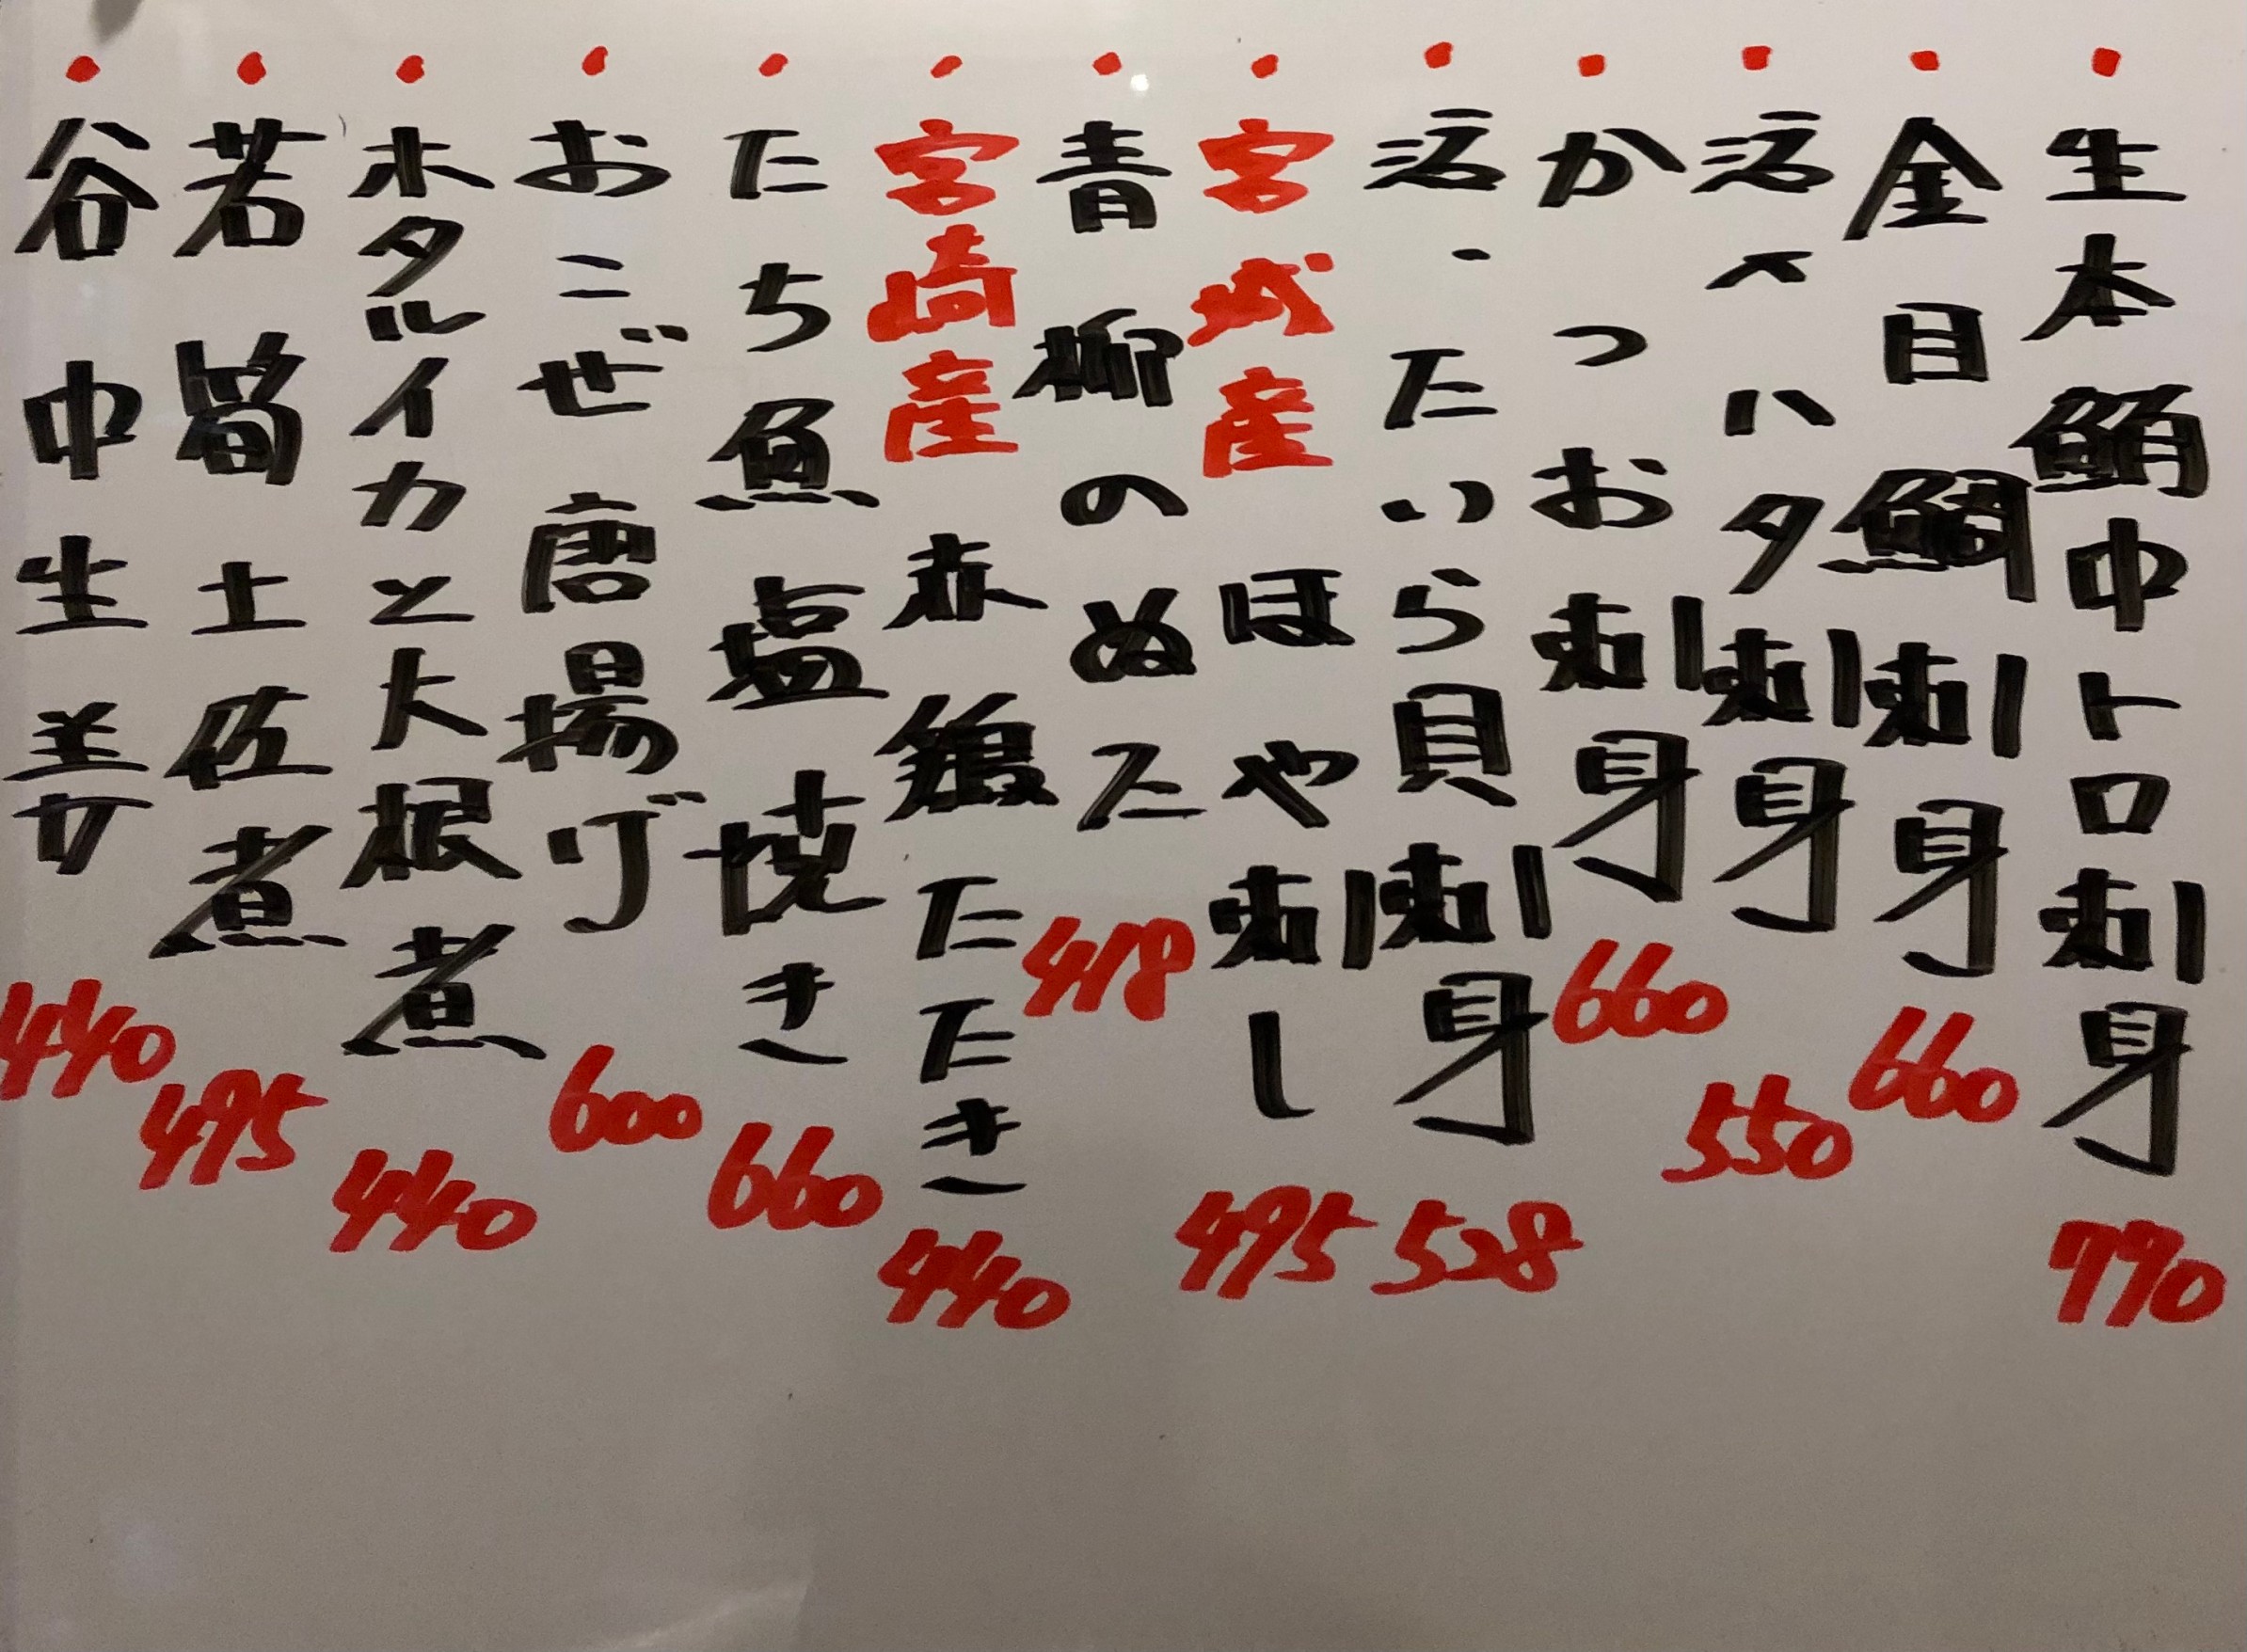 ・生本鮪中トロ刺身 790
・金目鯛刺身 660
・活〆ハタ刺身 550
・かつお刺身 660
・活・たいら貝刺身 528
・宮城産 ほや刺し 495
・青柳のぬた 418
・宮崎産 赤鶏たたき 440
・たち魚塩焼き 660
・おこぜ唐揚げ 600
・ホタルイカと大根煮 440
・若筍土佐煮 495
・谷中生姜 440